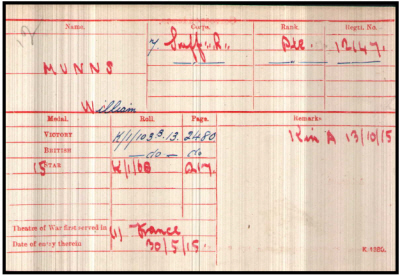 Name. Corps. Rank. Regtl. No.
MUNNS 7/Suff. R. Pte 12147.
William
Medal. Roll. Page. Remarks
VICTORY H/1/103B.13. 2480 K in A 13/10/15
BRITISH — do — do
15 STAR 217.
Theatre of War first served in (1) France
Date of entry therein 30/5/15.